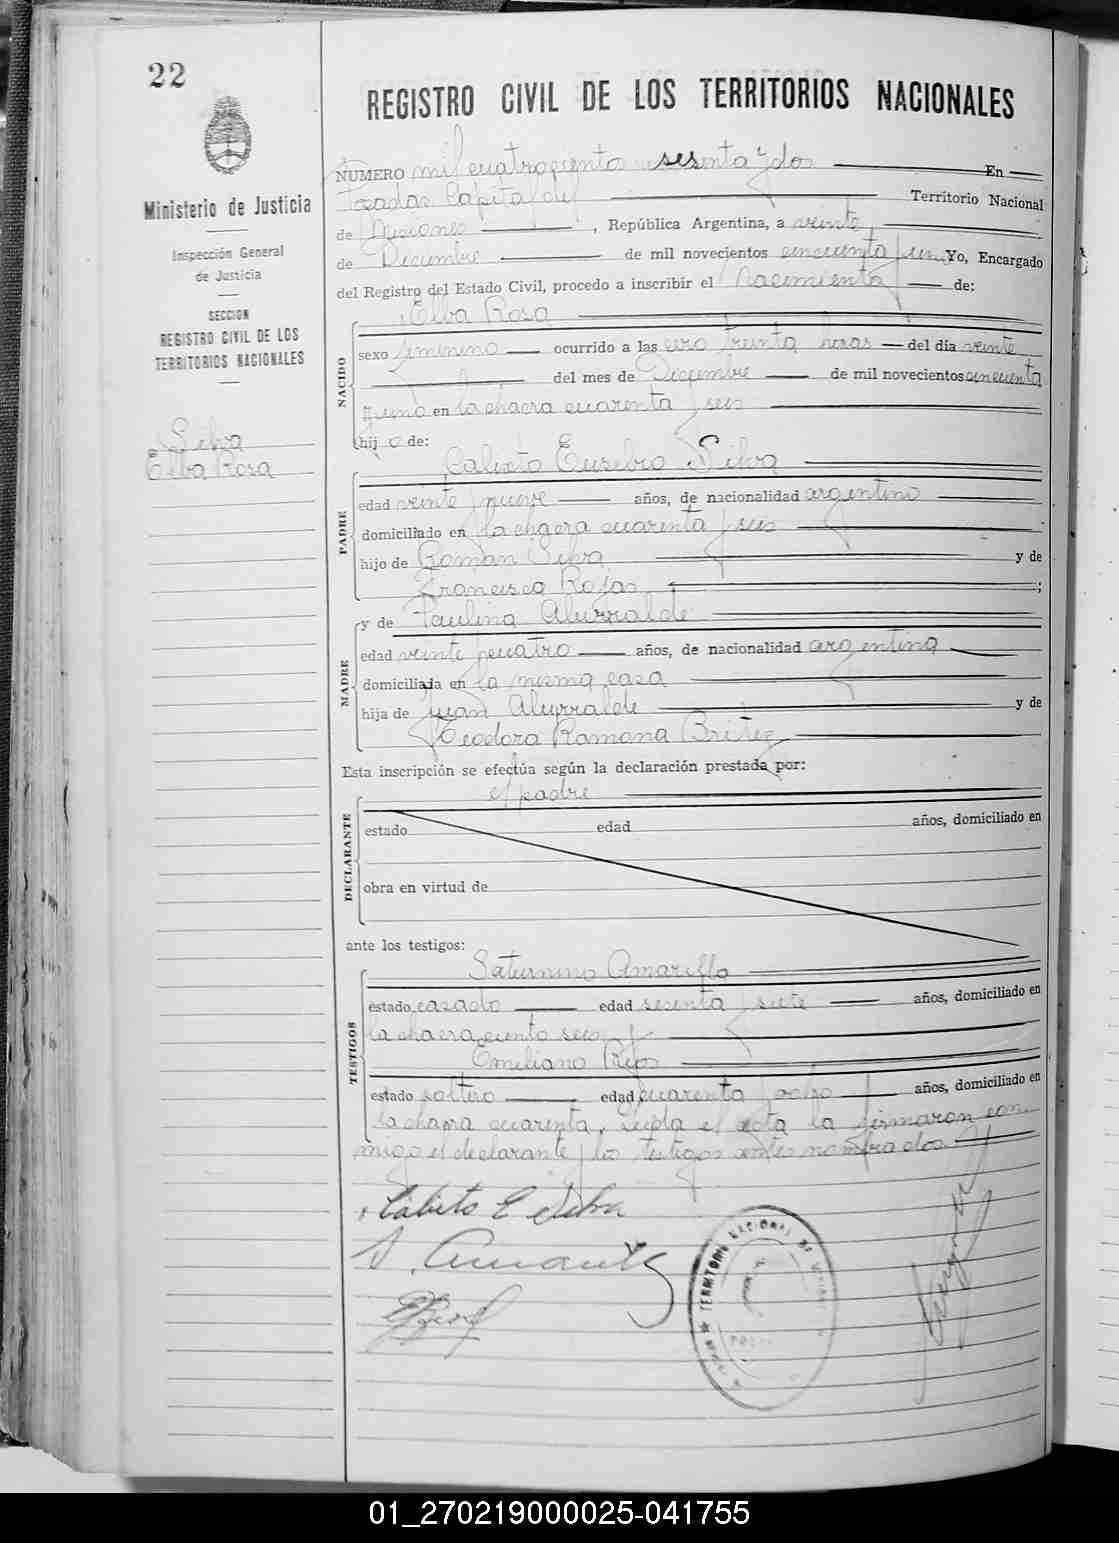 22
Ministerio de Justicia
Inspección General
de Justicia
SECCION
REGISTRO CIVIL DE LOS
TERRITORIOS NACIONALES
Silva
Elba Rosa
REGISTRO CIVIL DE LOS TERRITORIOS NACIONALES
NUMERO mil cuatrocientos sesenta y dos En
Posadas Capital del Territorio Nacional
de Misiones , República Argentina, a veinte
de Diciembre de mil novecientos cincuenta y uno Yo, Encargado
del Registro del Estado Civil, procedo a inscribir el Nacimiento de:
Elba Rosa
NACIDO
sexo femenino ocurrido a las cero treinta horas del día veinte
del mes de Diciembre de mil novecientos cincuenta
y uno en la chacra cuarenta y seis
hij a de:
Calixto Eusebio Silva
PADRE
edad veinte y nueve años, de nacionalidad argentino
domiciliado en la chacra cuarenta y seis
hijo de Román Silva y de
Francisca Rojas ;
y de Paulina Alurralde
MADRE
edad veinte y cuatro años, de nacionalidad argentina
domiciliada en la misma casa
hija de Juan Alurralde y de
Teodora Ramona Britez
Esta inscripción se efectúa según la declaración prestada por:
el padre
DECLARANTE
estado edad años, domiciliado en
obra en virtud de
ante los testigos:
Saturnino Amarilla
TESTIGOS
estado casado edad sesenta y siete años, domiciliado en
la chacra ciento seis y
Emiliano Rios
estado soltero edad cuarenta y ocho años, domiciliado en
la chacra cuarenta, leída el acta la firmaron con-
migo el declarante y los testigos antes nombrados
Calixto E Silva
S. Amarilla
TERRITORIO NACIONAL DE
01_270219000025-041755